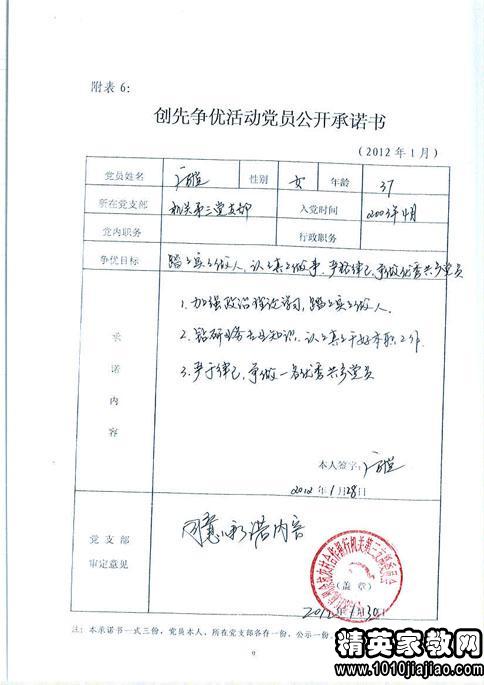 附表 6：
创先争优活动党员公开承诺书
（2012 年 1 月）
党员姓名 性别 女 年龄 37
所在党支部 机关第三党支部 入党时间 2003年4月
党内职务 行政职务
争优目标 踏踏实实做人，认认真真做事，严格律己，争做优秀共产党员
承诺内容
1. 加强政治理论学习，踏踏实实做人。
2. 钻研业务专业知识，认认真真干好本职工作。
3. 严于律己，争做一名优秀共产党员
本人签字：
2012年1月28日
党支部审定意见
同意承诺内容
（盖章）
2012年1月30日
注：本承诺书一式三份，党员本人、所在党支部各存一份，公示一份。
9
精英家教网
www.1010jiajiao.com